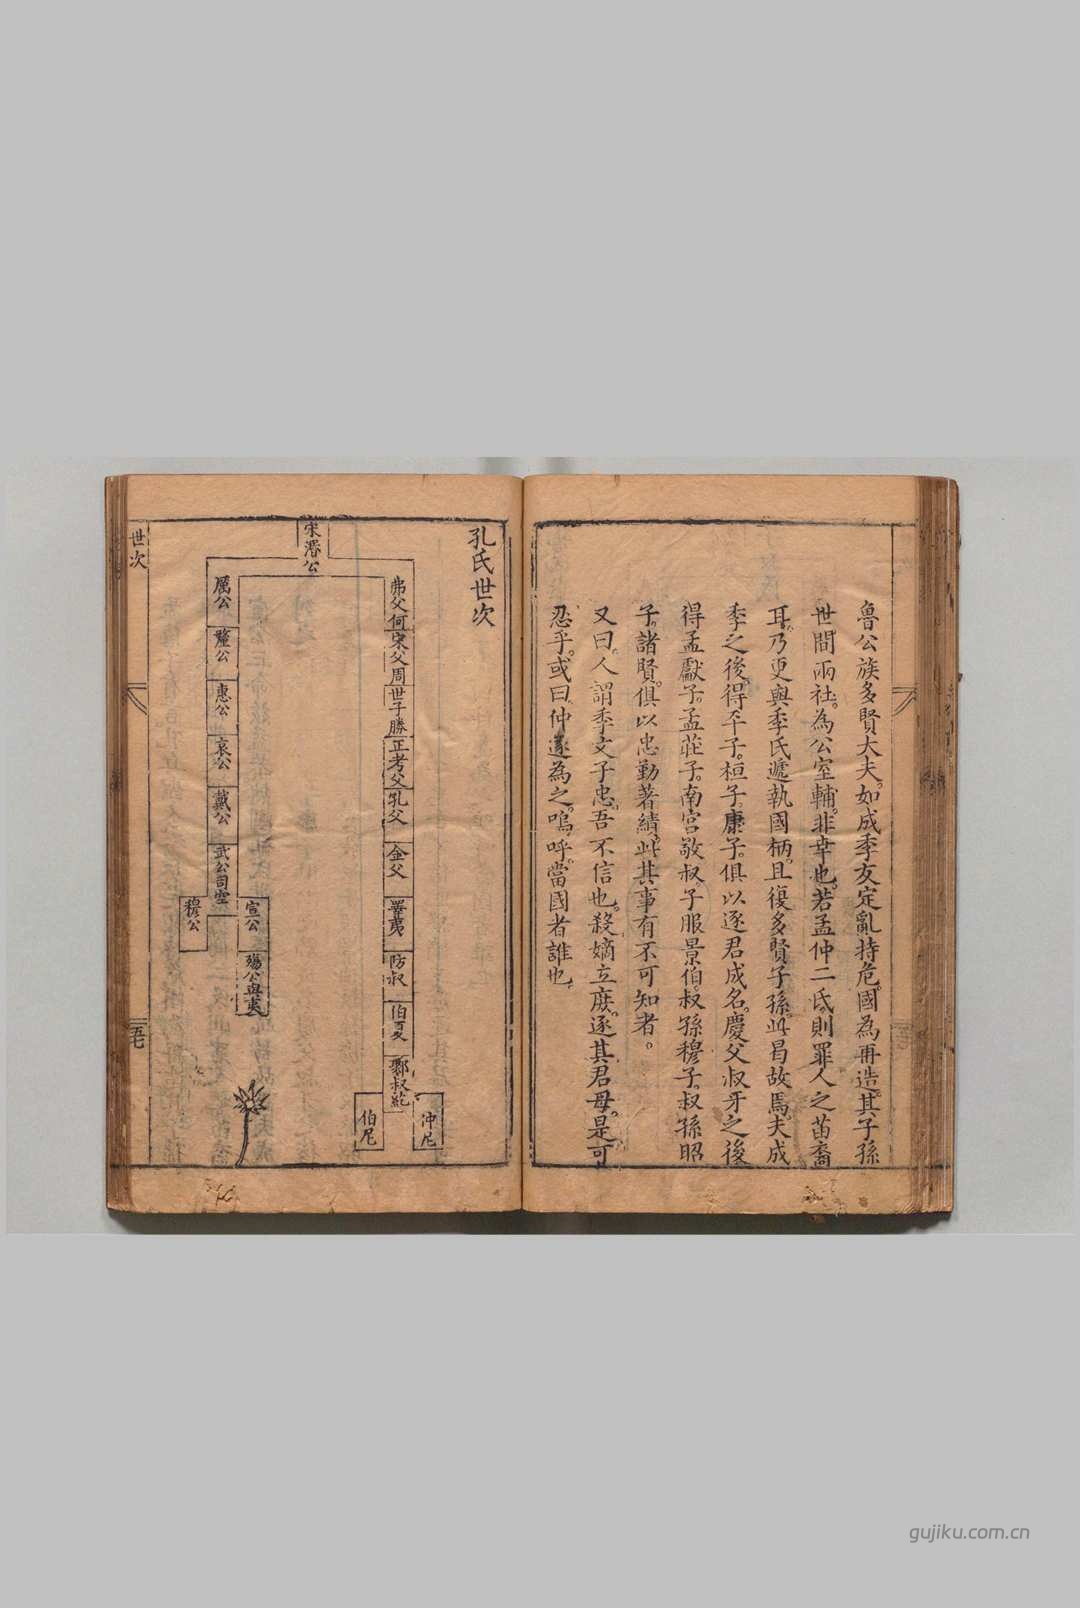 魯公族多賢大夫。如成季友定亂持危。國為再造。其子孫
世間兩社。為公室輔。非幸也。若孟仲二氏則罪人之苗裔
耳。乃更與季氏遞執國柄。且復多賢子孫。此曷故焉。夫成
季之後。得平子。桓子。康子。俱以逐君成名。慶父叔牙之後
得孟獻子。孟莊子。南宮敬叔。子服景伯。叔孫穆子。叔孫昭
子。諸賢。俱以忠勤著績。此其事有不可知者。
又曰。人謂季文子忠。吾不信也。殺嫡立庶。逐其君母。是可
忍乎。或曰仲遂為之。嗚呼。當國者誰也。
孔氏世次
宋湣公
弗父何
宋父周
世子勝
正考父
孔父
金父
睪夷
防叔
伯夏
鄹叔紇
仲尼
伯尼
厲公
釐公
惠公
哀公
戴公
武公司空
宣公
殤公與夷
穆公
世次
五七
gujiku.com.cn